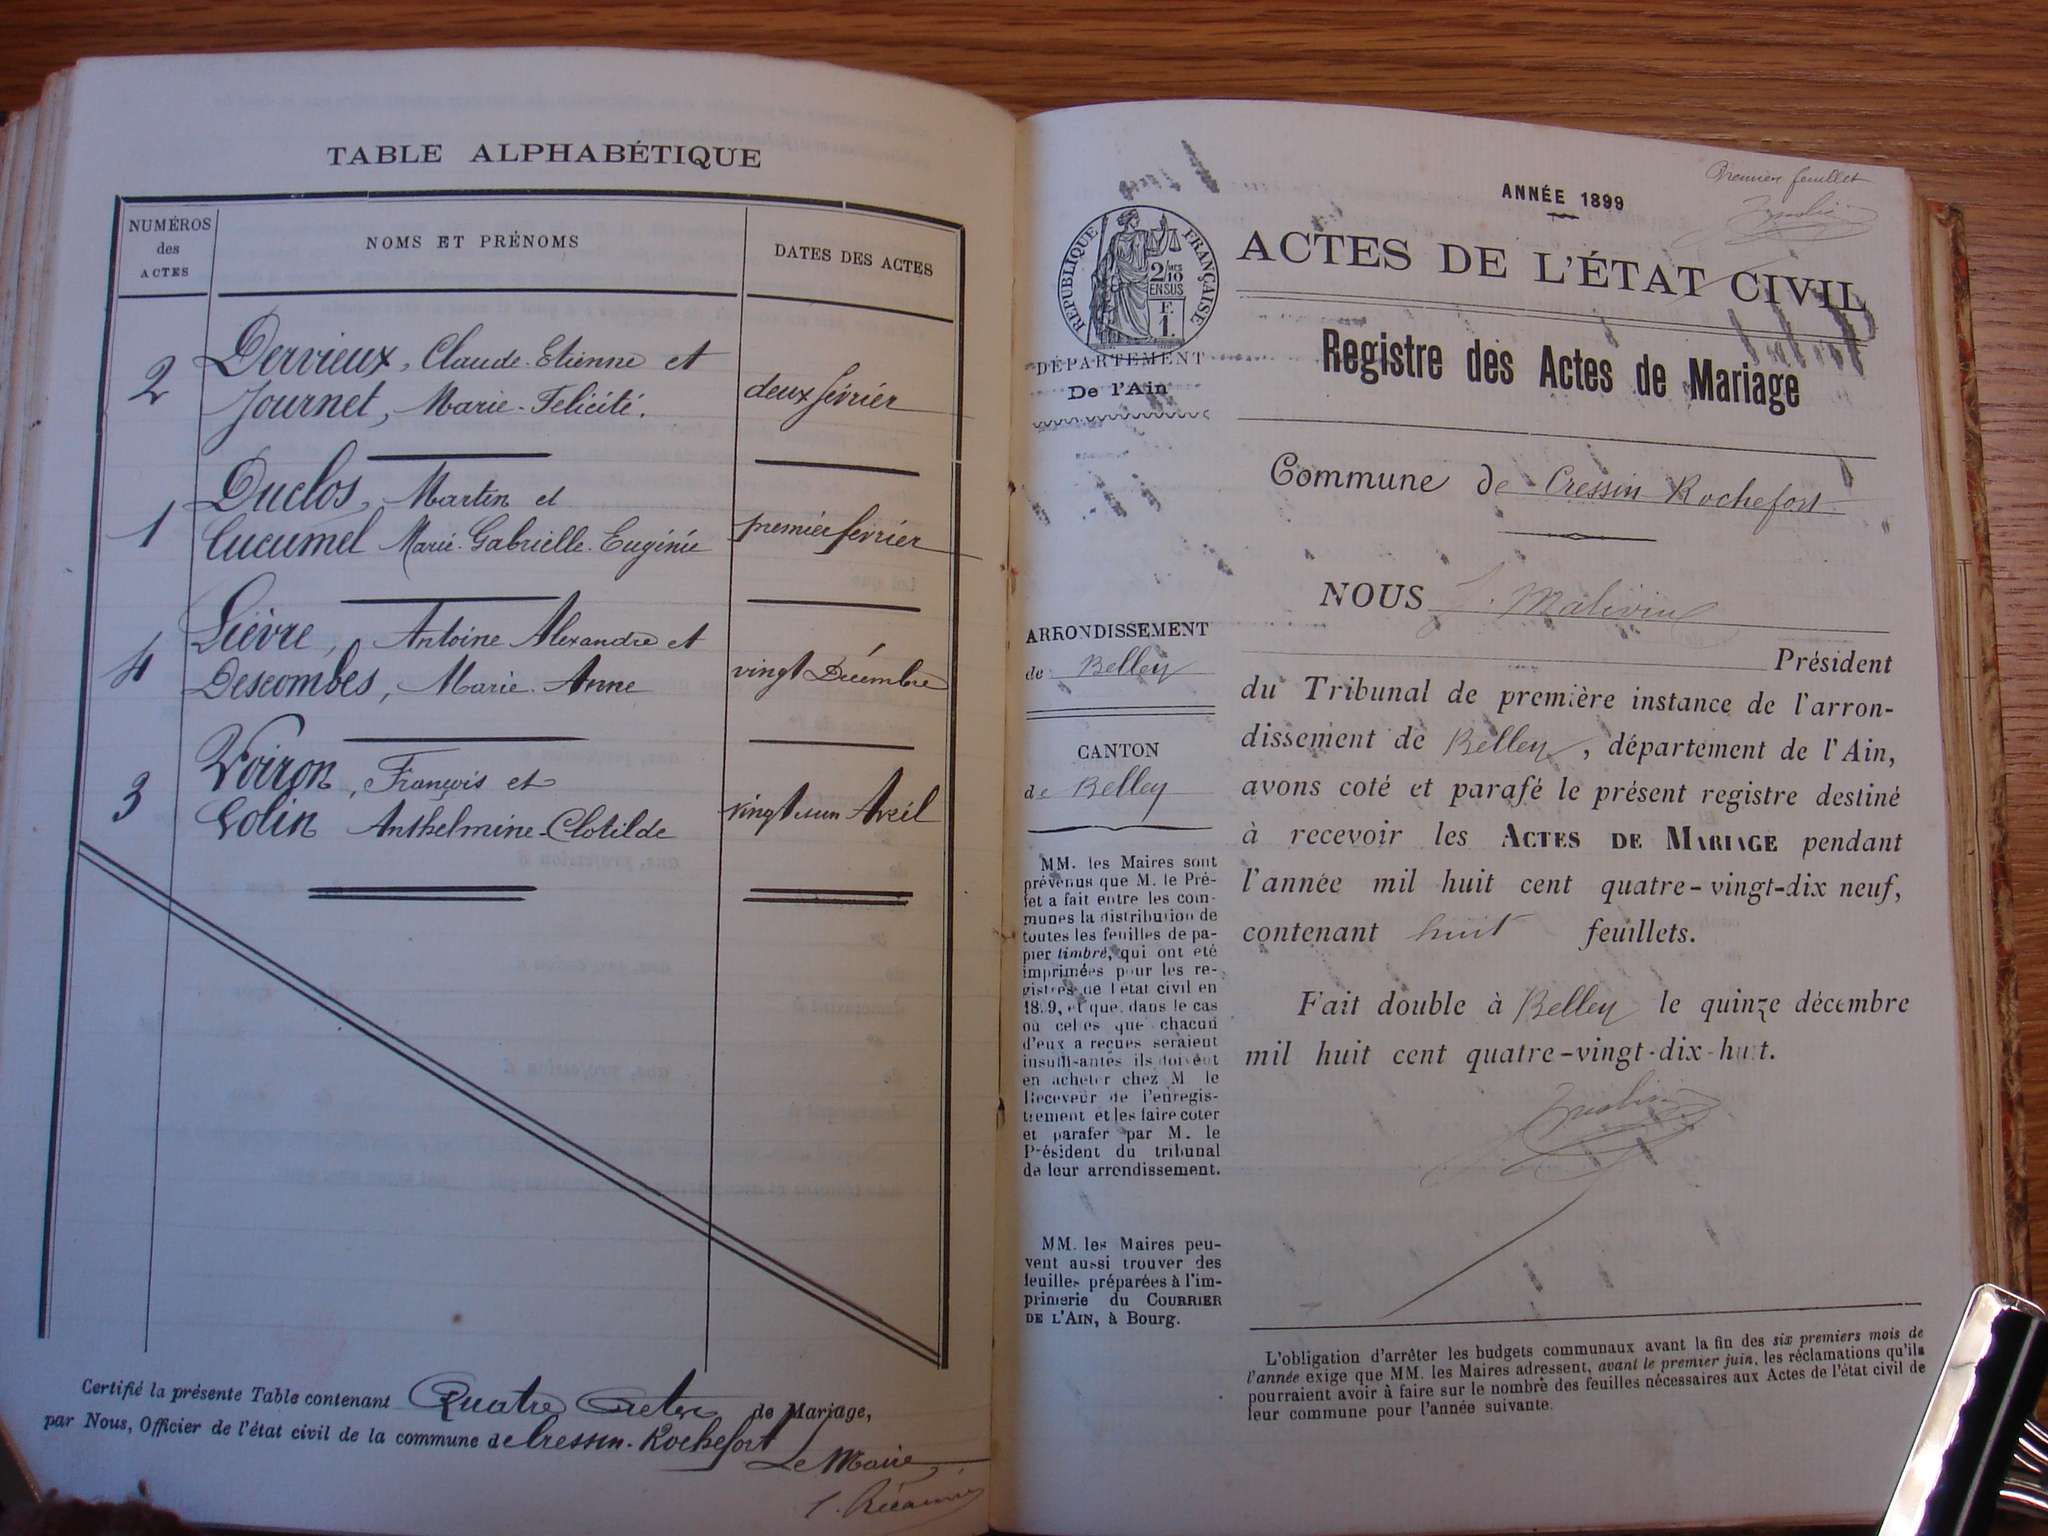 TABLE ALPHABÉTIQUE
NUMÉROS des ACTES
NOMS ET PRÉNOMS
DATES DES ACTES
2
Dervieux, Claude-Etienne et
Journet, Marie-Felicité.
deux février
1
Duclos, Martin et
Cucumel Marie-Gabrielle-Eugénie
premier février
4
Lièvre, Antoine Alexandre et
Descombes, Marie-Anne
vingt Décembre
3
Voiron, François et
Colin Anthelmine-Clotilde
vingt-un Avril
Certifié la présente Table contenant Quatre Actes de Mariage,
par Nous, Officier de l'état civil de la commune de Cressin-Rochefort
Le Maire
Premier feuillet
ANNÉE 1899
ACTES DE L'ÉTAT CIVIL
RÉPUBLIQUE FRANÇAISE
2/10 EN SUS
F. 1.
DÉPARTEMENT
De l'Ain
Registre des Actes de Mariage
Commune de Cressin Rochefort
NOUS J. Malivin
ARRONDISSEMENT
de Belley
CANTON
de Belley
MM. les Maires sont
prévenus que M. le Pré-
fet a fait entre les com-
munes la distribution de
toutes les feuilles de pa-
pier timbré, qui ont été
imprimées pour les re-
gistres de l'état civil en
1899, et que dans le cas
où celles que chacun
d'eux a reçues seraient
insuffisantes ils doivent
en acheter chez M. le
Receveur de l'enregis-
trement et les faire coter
et parafer par M. le
Président du tribunal
de leur arrondissement.
MM. les Maires peu-
vent aussi trouver des
feuilles préparées à l'im-
primerie du COURRIER
DE L'AIN, à Bourg.
Président
du Tribunal de première instance de l'arron-
dissement de Belley, département de l'Ain,
avons coté et parafé le présent registre destiné
à recevoir les ACTES DE MARIAGE pendant
l'année mil huit cent quatre-vingt-dix neuf,
contenant huit feuillets.
Fait double à Belley le quinze décembre
mil huit cent quatre-vingt-dix-huit.
L'obligation d'arrêter les budgets communaux avant la fin des six premiers mois de
l'année exige que MM. les Maires adressent, avant le premier juin, les réclamations qu'ils
pourraient avoir à faire sur le nombre des feuilles nécessaires aux Actes de l'état civil de
leur commune pour l'année suivante.